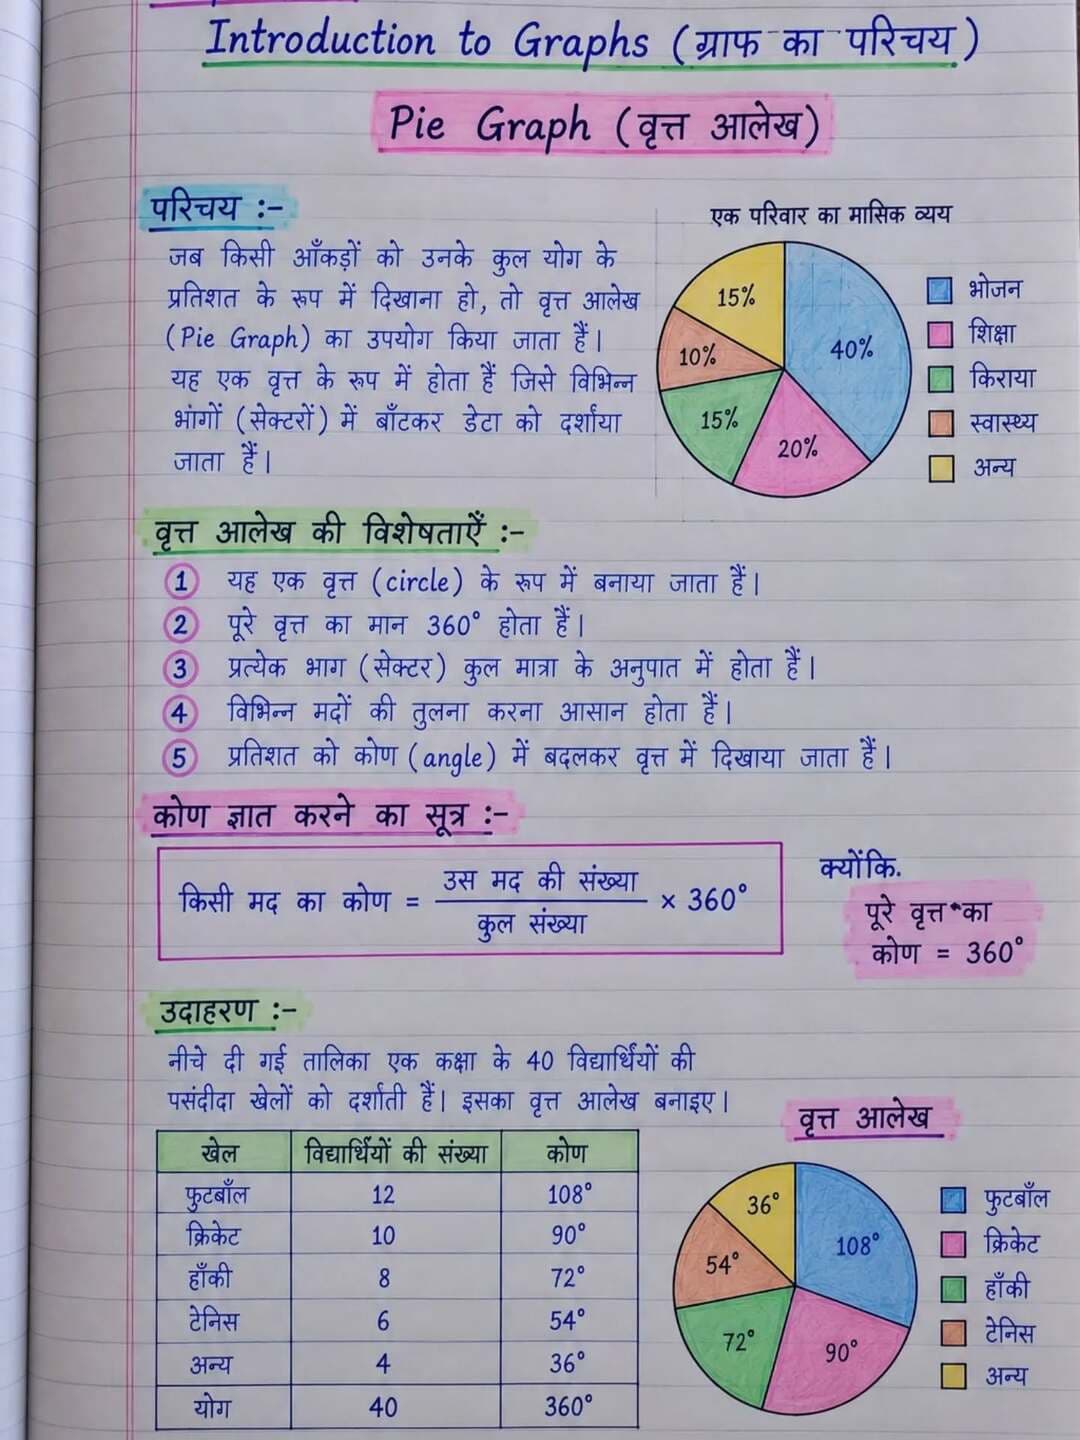 Introduction to Graphs (ग्राफ का परिचय)
Pie Graph (वृत्त आलेख)
परिचय :-
जब किसी आँकड़ों को उनके कुल योग के
प्रतिशत के रूप में दिखाना हो, तो वृत्त आलेख
(Pie Graph) का उपयोग किया जाता हैं।
यह एक वृत्त के रूप में होता हैं जिसे विभिन्न
भांगों (सेक्टरों) में बाँटकर डेटा को दर्शाया
जाता हैं।
एक परिवार का मासिक व्यय
15%
40%
10%
15%
20%
भोजन
शिक्षा
किराया
स्वास्थ्य
अन्य
वृत्त आलेख की विशेषताएँ :-
1 यह एक वृत्त (circle) के रूप में बनाया जाता हैं।
2 पूरे वृत्त का मान 360° होता हैं।
3 प्रत्येक भाग (सेक्टर) कुल मात्रा के अनुपात में होता हैं।
4 विभिन्न मदों की तुलना करना आसान होता हैं।
5 प्रतिशत को कोण (angle) में बदलकर वृत्त में दिखाया जाता हैं।
कोण ज्ञात करने का सूत्र :-
किसी मद का कोण = उस मद की संख्या / कुल संख्या × 360°
क्योंकि.
पूरे वृत्त का
कोण = 360°
उदाहरण :-
नीचे दी गई तालिका एक कक्षा के 40 विद्यार्थियों की
पसंदीदा खेलों को दर्शाती हैं। इसका वृत्त आलेख बनाइए।
खेल विद्यार्थियों की संख्या कोण
फुटबॉल 12 108°
क्रिकेट 10 90°
हॉकी 8 72°
टेनिस 6 54°
अन्य 4 36°
योग 40 360°
वृत्त आलेख
36°
108°
54°
72°
90°
फुटबॉल
क्रिकेट
हॉकी
टेनिस
अन्य